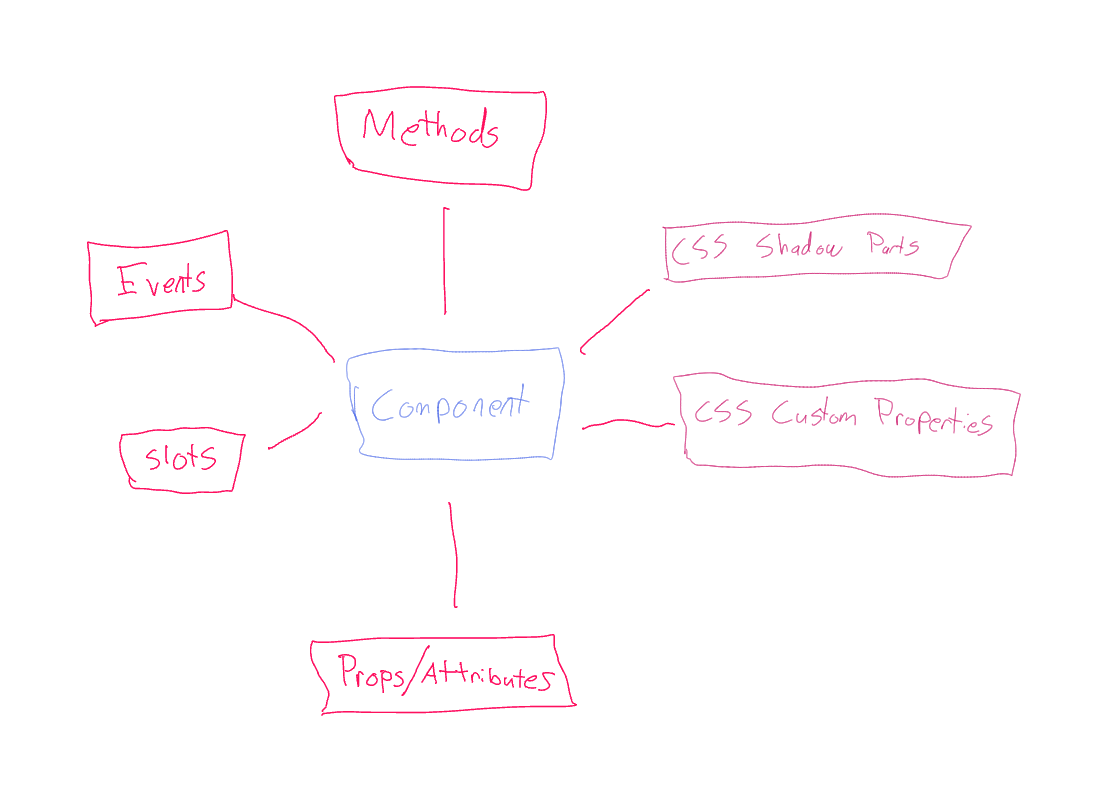 Methods
Events
CSS Shadow Parts
Component
CSS Custom Properties
slots
Props/Attributes